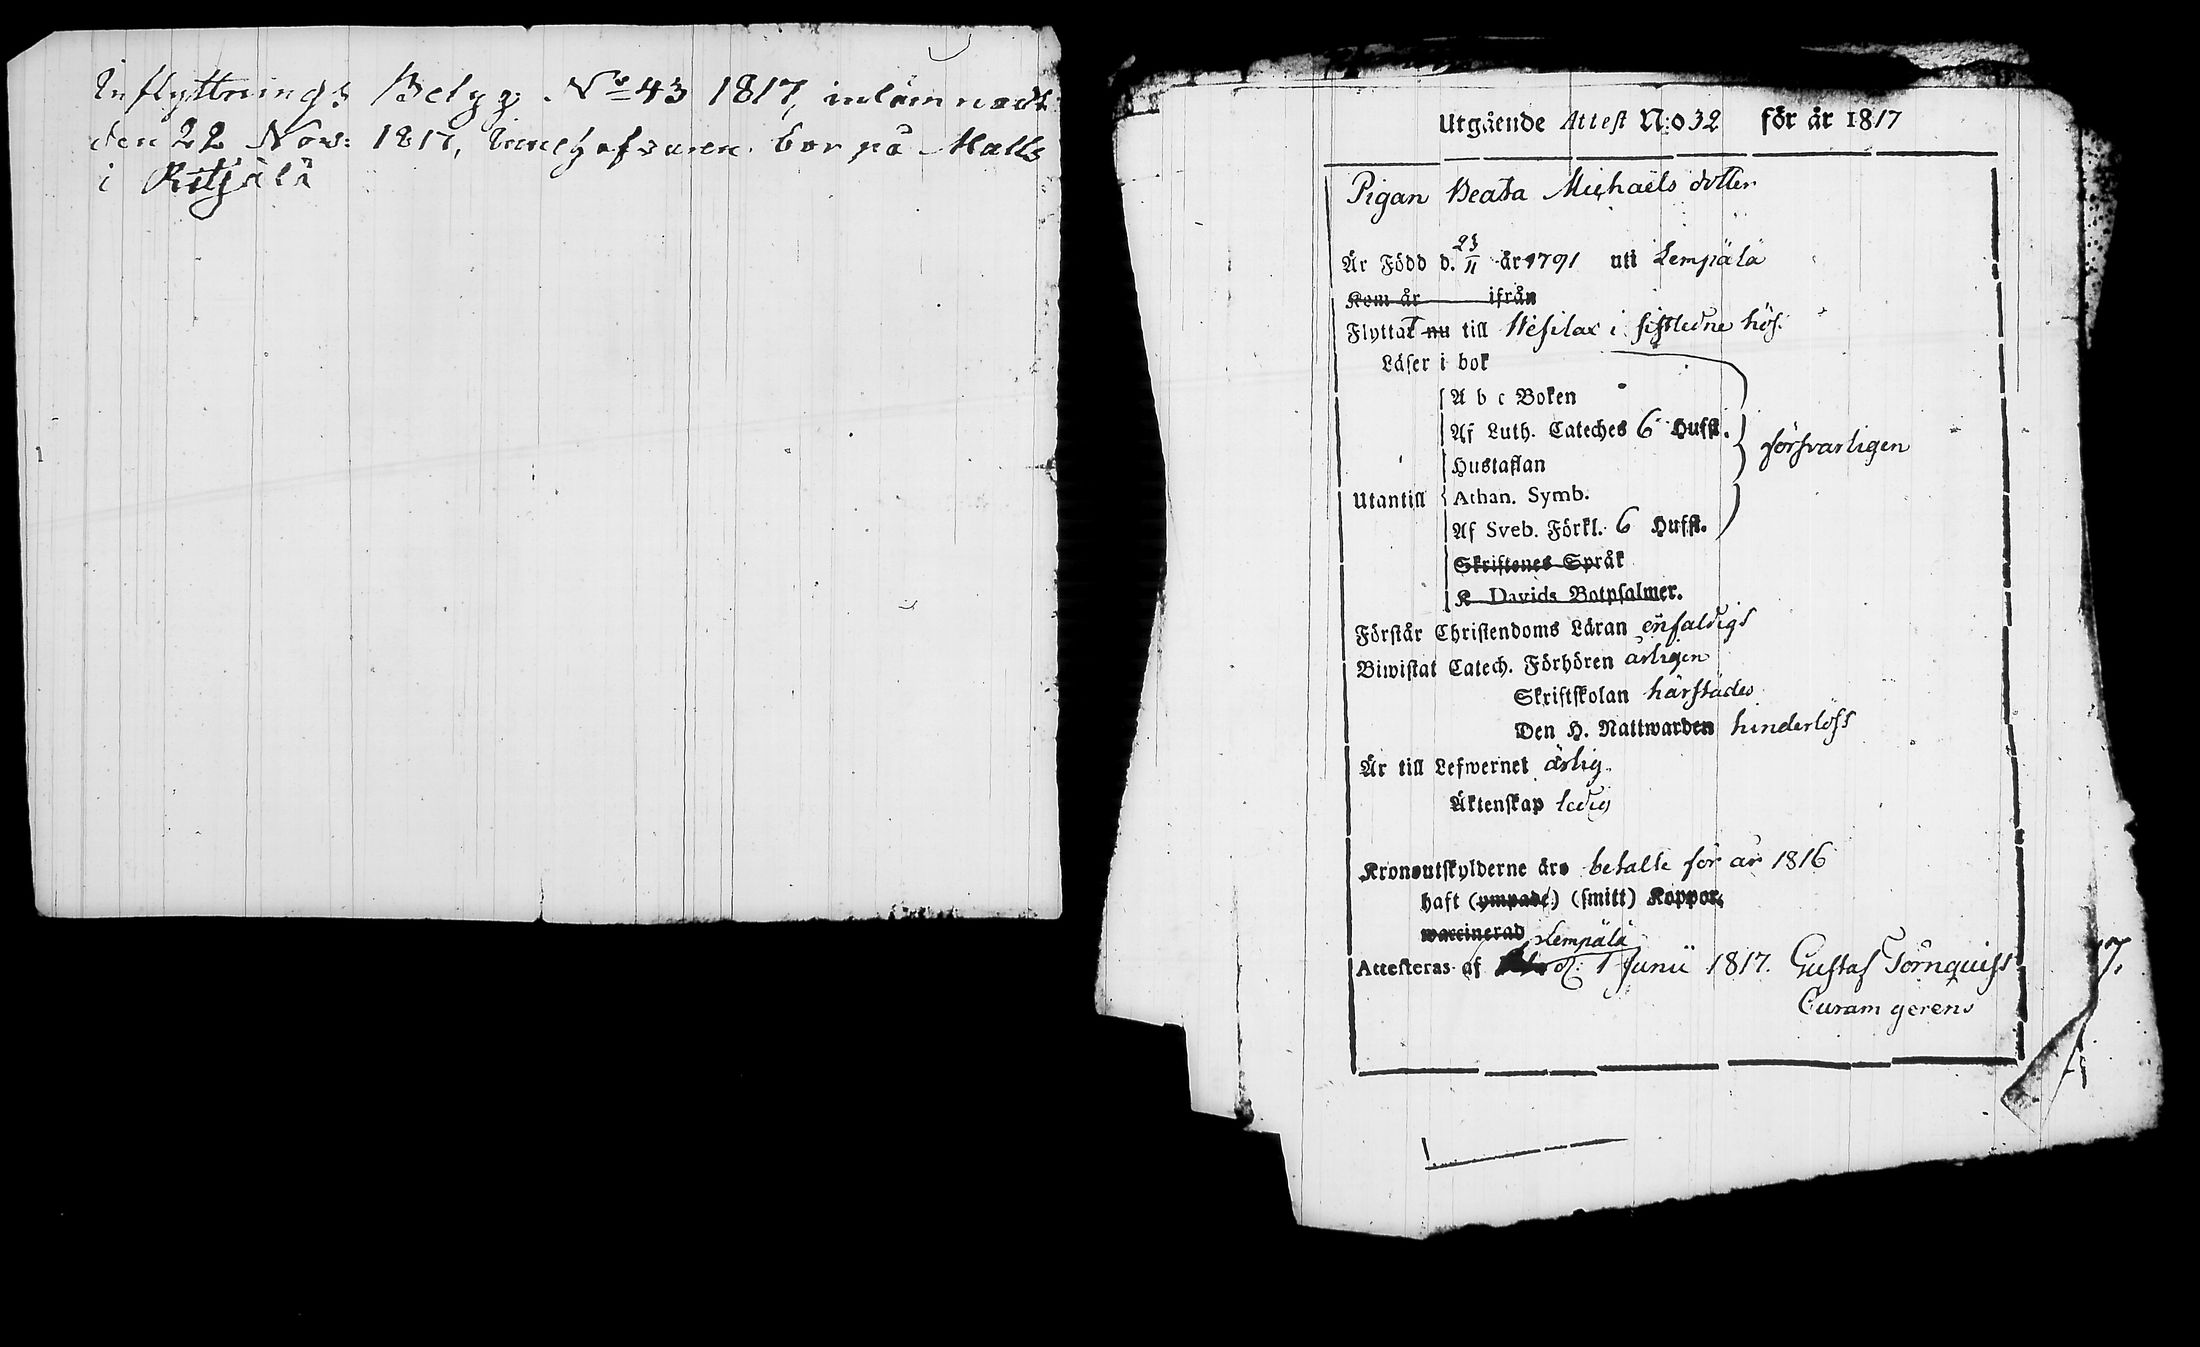 Inflyttnings Belgg. No 43 1817, inlämnadt
den 22 Nov: 1817, Innehafvaren bor på Matls
i
Utgående Attest N:o 32 för år 1817
Pigan Beata Michaels dotter
Är Född d. 23/11 år 1791 uti Lempälä
Kom år ifrån
Flyttat nu till Wesilax i sistledne hös.
Läser i bok
A b c Boken
Af Luth. Cateches 6 Hufst.
försvarligen
Hustaflan
Utantill Athan. Symb.
Af Sveb. Förkl. 6 Hufst.
Skriftenes Språk
K Davids Botpsalmer.
Förstår Christendoms Läran enfaldigt
Biwistat Catech. Förhören årligen
Skriftskolan härstädes
Den H. Nattwarden hinderlöst
Är till Lefwernet ärlig
Äktenskap ledig
Kronoutskylderne äro betalte för år 1816
haft (ympade) (smitt) Koppor.
waccinerad Lempälä
Attesteras af d: 1 Junii 1817. Gustaf Törnquist
Curam gerens